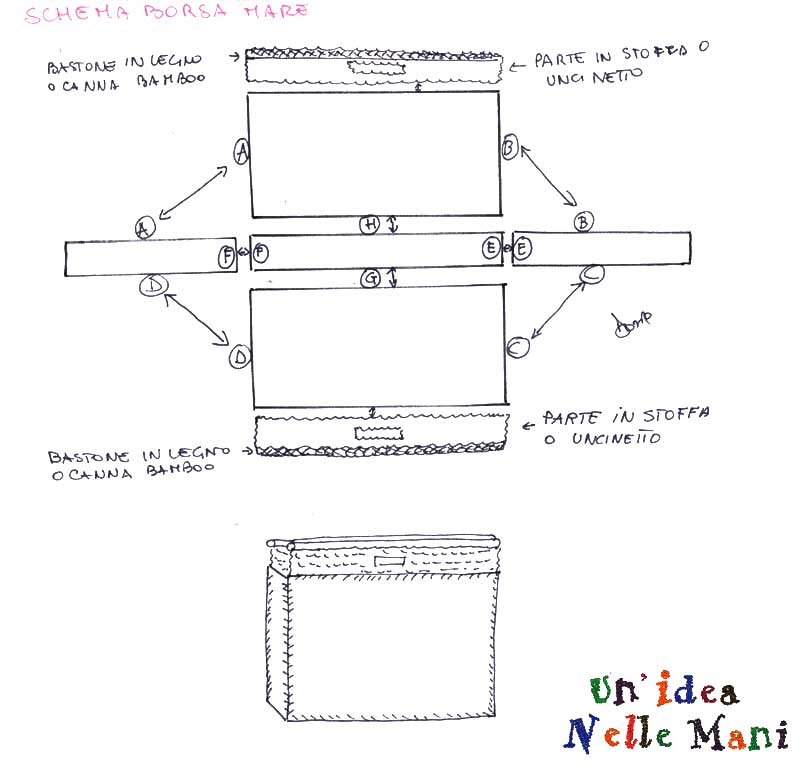 SCHEMA BORSA MARE
BASTONE IN LEGNO
O CANNA BAMBOO
PARTE IN STOFFA O
UNCINETTO
A
B
A
H
B
F
F
E
E
D
G
C
D
C
PARTE IN STOFFA
O UNCINETTO
BASTONE IN LEGNO
O CANNA BAMBOO
Un'idea
Nelle Mani